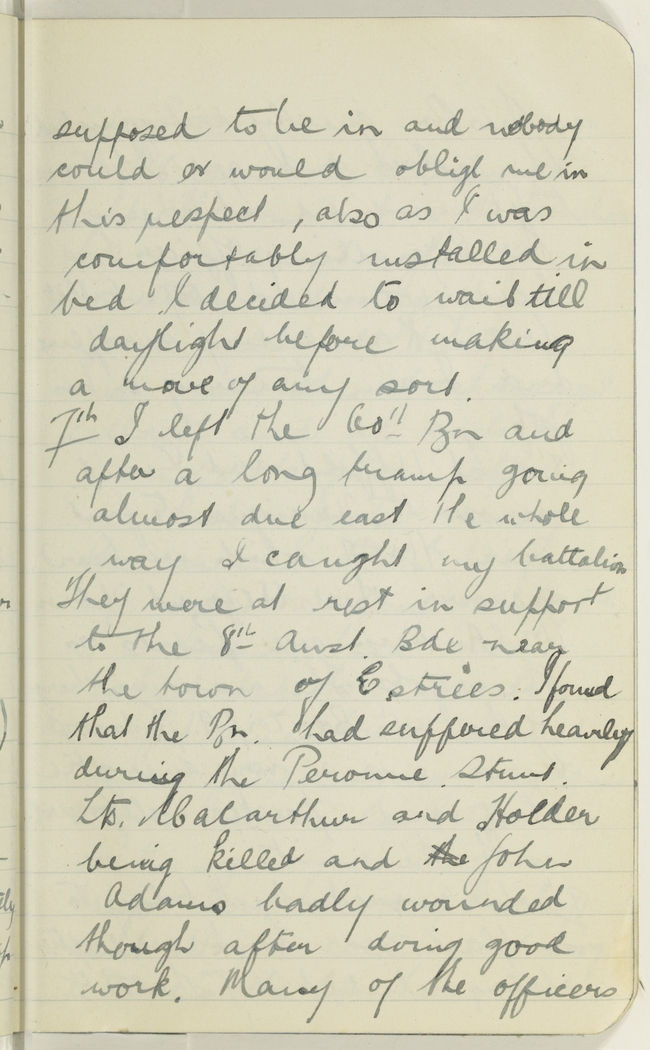 supposed to be in and nobody
could or would oblige me in
this respect, also as I was
comfortably installed in
bed I decided to wait till
daylight before making
a move of any sort.
7th I left the 60th Bn and
after a long tramp going
almost due east the whole
way I caught my battalion
They were at rest in support
to the 8th Aust. Bde near
the town of Estrées. I found
that the Bn. had suffered heavily
during the Peronne Stunt.
Lts. Macarthur and Holder
being killed and the John
Adams badly wounded
though after doing good
work. Many of the officers